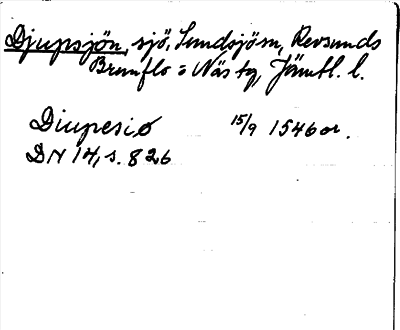 Djupsjön, sjö, Sundsjö sn, Revsunds
Brunflo o Näs tg, Jämtl. l.
Diupesiø 15/9 1546 or.
DN 14, s. 826